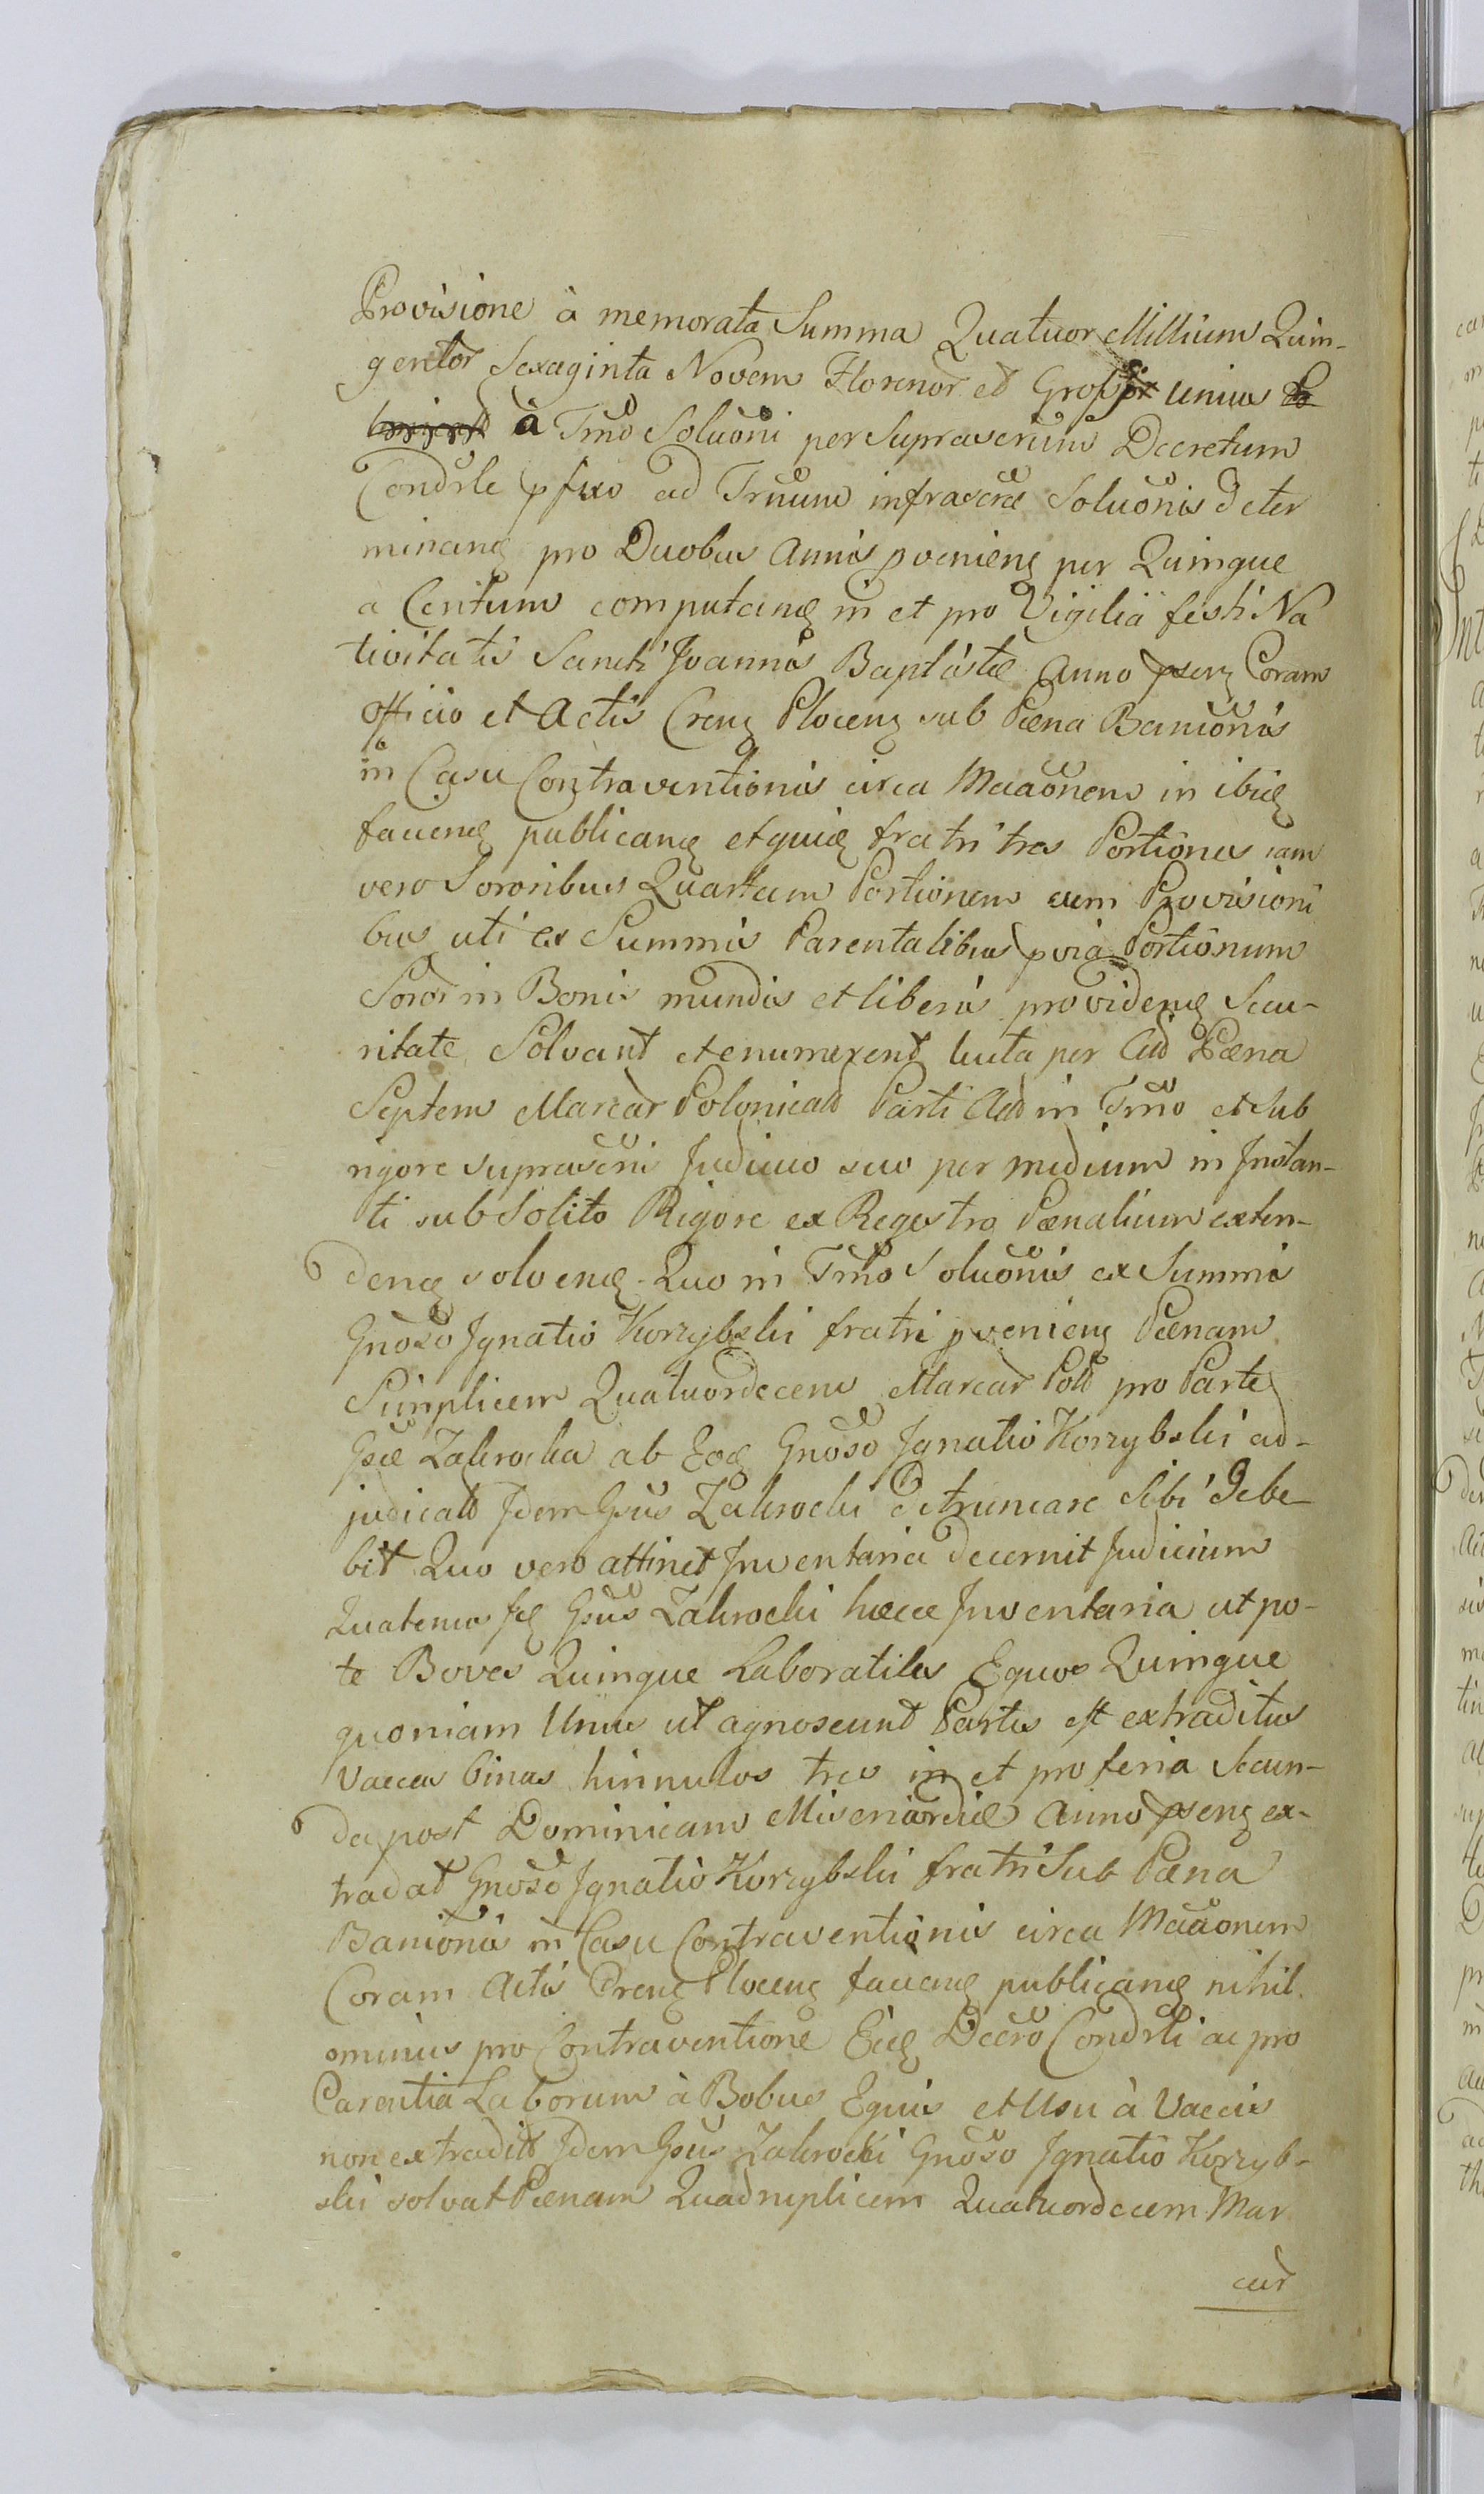 Provisione à memorata Summa Quatuor Millium Quin-
gentor Sexaginta Novem Florenor et Grossi unius
à Tmō Soluõni per Suprascrium Decretum
Condrle pfixo ad Trnum infrascræ Soluõnis deter
minanȩ pro Duobus Annis pvenienȩ per Quinque
a Centum computanȩ in et pro Vigilia festi Na
tivitatis Sancti Joannis Baptistæ Anno psenȩ Coram
Officio et Actis Crenȩ Plocenȩ sub Pæna Baniõnis
in Casu Contraventionis circa Maãonem in ibiȩ
facienȩ publicanȩ et quiȩ fratri tres Portiones iam
vero Sororibus Quartam Portionem cum Provisioni
bus uti ex Summis Parentalibus pvia Portionum
Soror in Bonis mundis et liberis providenȩ Secu-
ritate Solvant et enumerent luita per Cit Pæna
Septem Marcar Polonicalt Parti Act in Tmō et sub
rigore suprascrii Judicio suo per medium in Instan-
ti sub Solito Rigore ex Regestro Pænalium exten-
denȩ solvenȩ. Quo in Tmō Soluõnis ex Summis
Gnoso Ignatio Korzybski fratri pvenienȩ Pænam
Simplicem Quatuordecem Marcar Polt pro Parte
Gsæ Zakrocka ab Eoȩ Gnoso Ignatio Korzybski ad-
judicalt Idem Gsus Zakrocki detruncare Sibi debe-
bit Quo vero attinet Inventaria decernit Judicium
Quatenus Iȩ Gsus Zakrocki hæcce Inventaria utpo-
te Boves Quinque Laboratiles Equos Quinque
quoniam Unus ut agnoscunt Partes est extraditus
Vaccas binas hinnulos tres in et pro feria Secun-
da post Dominicam Misericordiæ Anno psenȩ ex-
tradat Gnoso Ignatio Korzybski fratri Sub Pæna
Baniõnis in Casu Contraventionis circa Maãonem
Coram Actis Crenȩ Plocenȩ facienȩ publicanȩ nihil
ominus pro Contraventione Eiȩ Decro Condrli ac pro
Carentia Laborum à Bobus Equis et Usu à Vaccis
non extradit Idem Gsus Zakrocki Gnoso Ignatio Korzyb-
ski solvat Pænam Quadruplicem Quatuordecem Mar
car